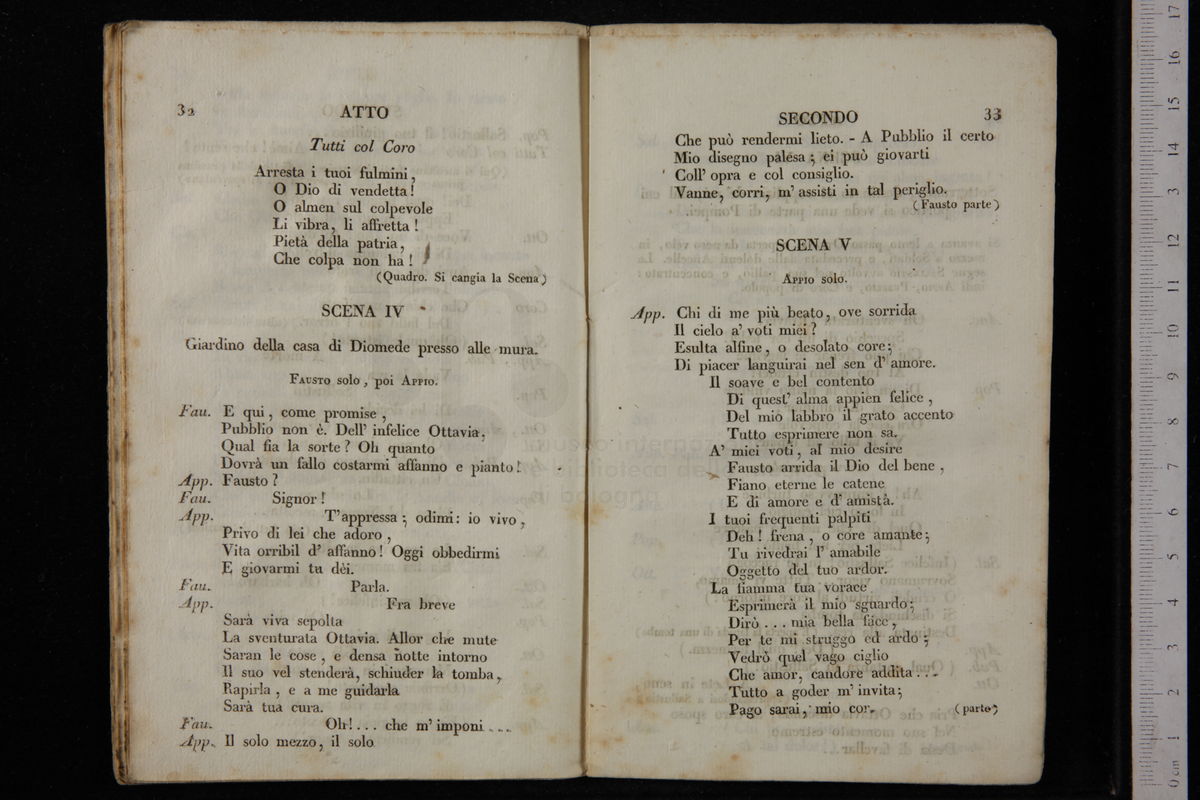 32 ATTO
Tutti col Coro
Arresta i tuoi fulmini,
O Dio di vendetta!
O almen sul colpevole
Li vibra, li affretta!
Pietà della patria,
Che colpa non ha!
(Quadro. Si cangia la Scena)
SCENA IV
Giardino della casa di Diomede presso alle mura.
FAUSTO solo, poi APPIO.
Fau. E qui, come promise,
Pubblio non è. Dell' infelice Ottavia,
Qual fia la sorte? Oh quanto
Dovrà un fallo costarmi affanno e pianto!
App. Fausto?
Fau. Signor!
App. T'appressa; odimi: io vivo,
Privo di lei che adoro,
Vita orribil d' affanno! Oggi obbedirmi
E giovarmi tu dèi.
Fau. Parla.
App. Fra breve
Sarà viva sepolta
La sventurata Ottavia. Allor che mute
Saran le cose, e densa notte intorno
Il suo vel stenderà, schiuder la tomba,
Rapirla, e a me guidarla
Sarà tua cura.
Fau. Oh!... che m' imponi....
App. Il solo mezzo, il solo
SECONDO 33
Che può rendermi lieto. - A Pubblio il certo
Mio disegno palesa; ei può giovarti
Coll' opra e col consiglio.
Vanne, corri, m' assisti in tal periglio.
(Fausto parte)
SCENA V
APPIO solo.
App. Chi di me più beato, ove sorrida
Il cielo a' voti miei?
Esulta alfine, o desolato core;
Di piacer languirai nel sen d' amore.
Il soave e bel contento
Di quest' alma appien felice,
Del mio labbro il grato accento
Tutto esprimere non sa.
A' miei voti, al mio desire
Fausto arrida il Dio del bene,
Fiano eterne le catene
E di amore e d' amistà.
I tuoi frequenti palpiti
Deh! frena, o core amante;
Tu rivedrai l' amabile
Oggetto del tuo ardor.
La fiamma tua vorace
Esprimerà il mio sguardo;
Dirò... mia bella face,
Per te mi struggo ed ardo;
Vedrò quel vago ciglio
Che amor, candore addita...
Tutto a goder m' invita;
Pago sarai, mio cor. (parte)